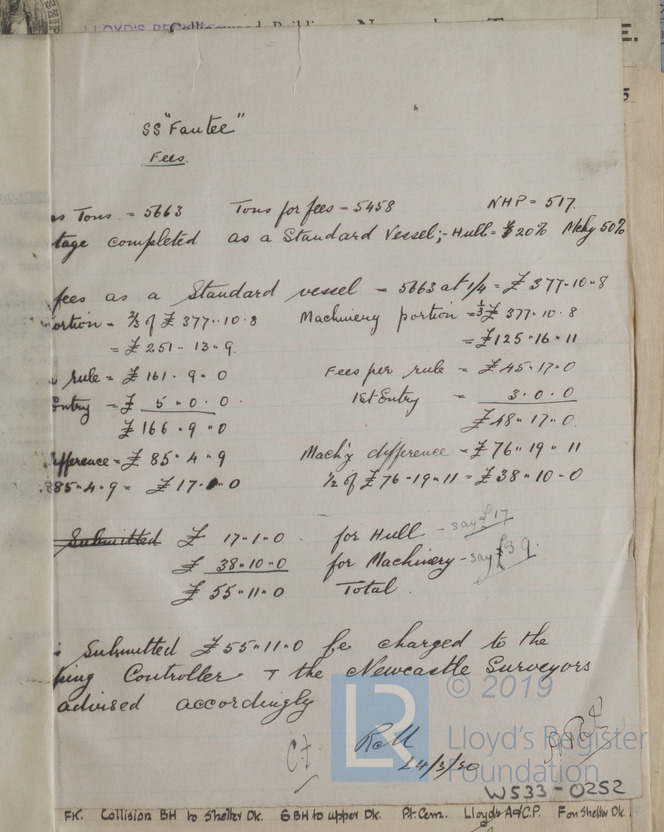 LLOYD'S RE
E.
5
SS "Fantee"
Fees.
ss Tons. = 5663 Tons for fees = 5458 NHP = 517.
tage completed as a Standard Vessel; - Hull = 20% Mchy 50%
fees as a Standard vessel = 5663 at 1/4 = £ 377-10-8
ortion = 2/3 of £ 377-10-8 Machinery portion = 1/3 £ 377-10-8
= £ 251-13-9. = £125-16-11
rule = £ 161-9-0 Fees per rule = £45-17-0
Entry = £ 5-0-0. 1st Entry = 3-0-0
£ 166-9-0 £48-17-0
ifference = £ 85-4-9 Mach'y difference = £76-19-11
£85-4-9 = £17-1-0 1/2 of £76-19-11 = £38-10-0
Submitted £ 17-1-0 for Hull - say £17
£ 38-10-0 for Machinery - say £39.
£ 55-11-0 Total.
Submitted £55-11-0 be charged to the
ping Controller & the Newcastle Surveyors
advised accordingly
© 2019
LR
Lloyd's Register
Foundation
24/3/20
W533-0252
FK. Collision BH to Shelter Dk. 6 BH to upper Dk. Pt. Cem. Lloyd's A&C.P. Fon Shelter Dk.